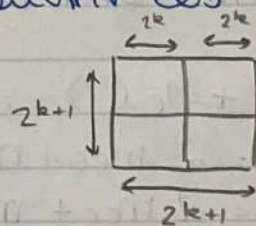 2^k 2^k
2^{k+1}
2^{k+1}